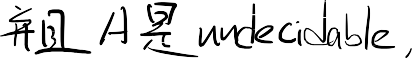 并且 A是 undecidable,